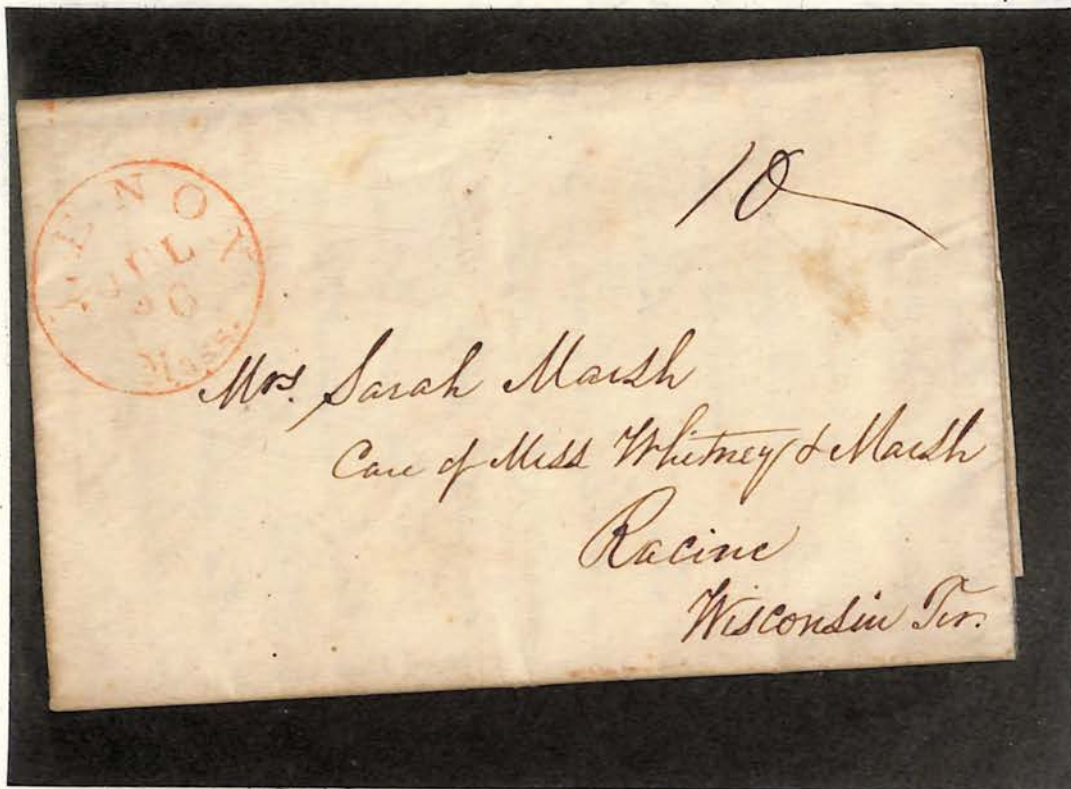 LENOX
JUL
Mass.
10
Mrs. Sarah Marsh
Care of Miss Whitney & Marsh
Racine
Wisconsin Ter.